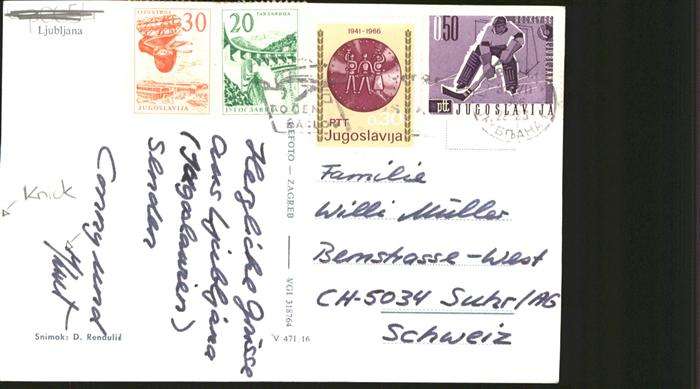 Ljubljana
30
JUGOSLAVIJA
20
JUGOSLAVIJA
1941-1966
PTT
0.30
Jugoslavija
0.50
ptt
JUGOSLAVIJA
Herzliche Grüsse
aus Ljubljana
(Jugoslavien)
Senden
Conny und
Knick
Familie
Willi Müller
Bernstrasse-West
CH-5034 Suhr/AG
Schweiz
ZAGREB
VGI 318764
V 471 16
Snimok: D. Rendulić